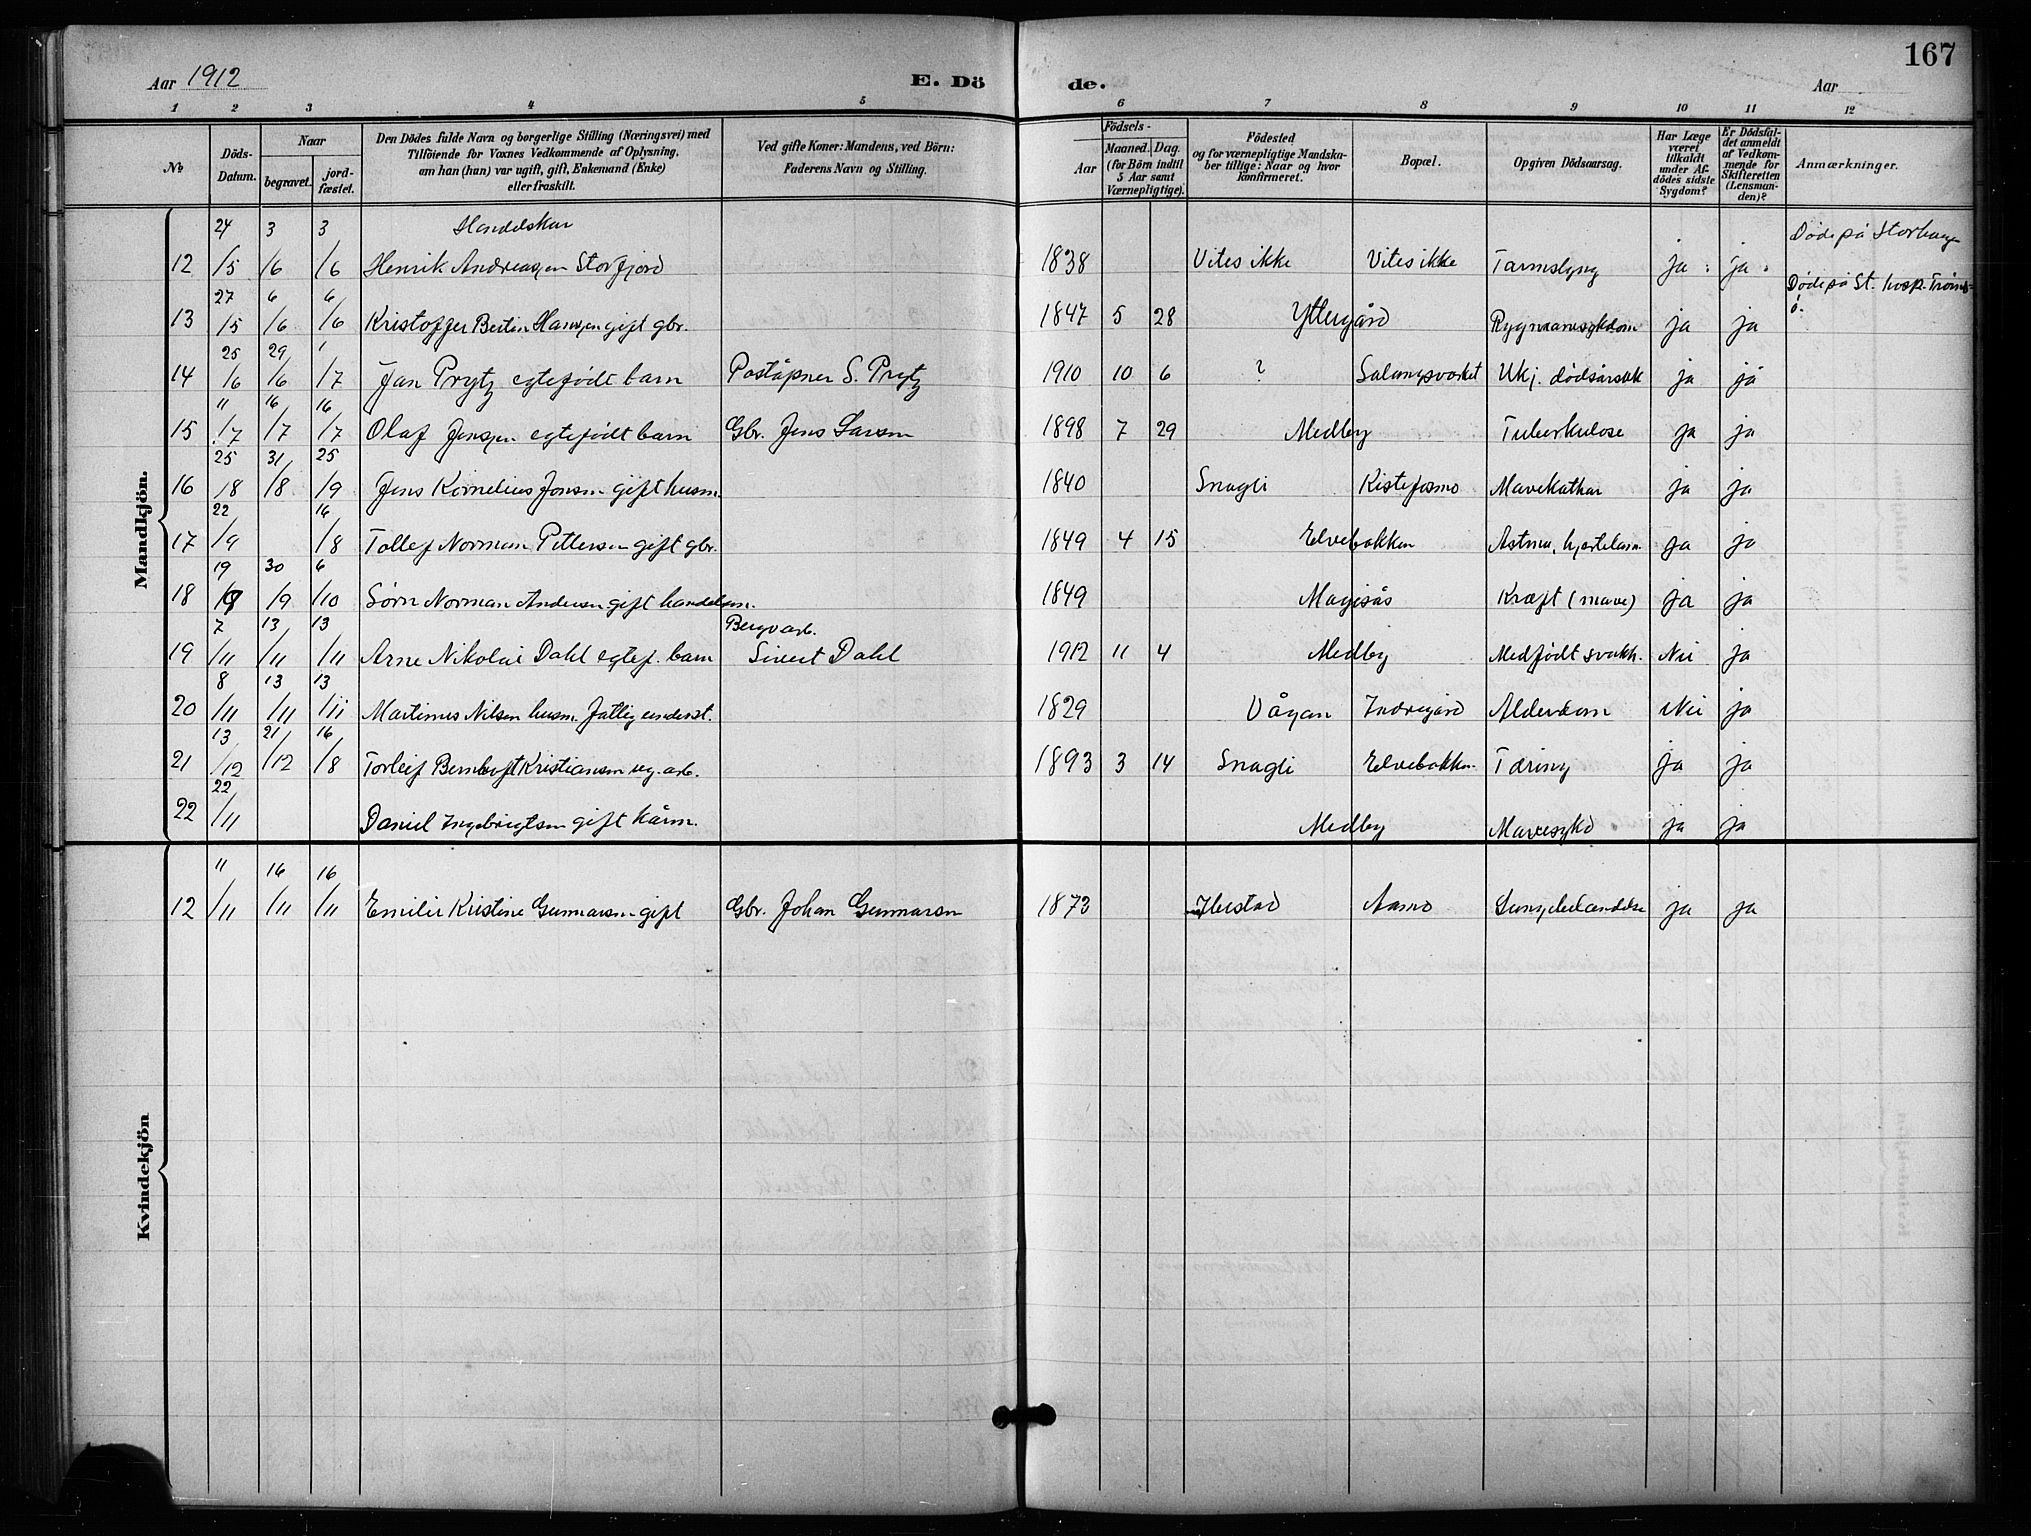 167
Aar 1912 E. Dö de. Aar
1 2 3 4 5 6 7 8 9 10 11 12
№ Döds-Datum. Naar begravet. jord-fæstet. Den Dödes fulde Navn og borgerlige Stilling (Næringsvei) med Tilföiende for Voxnes Vedkommende af Oplysning, om han (hun) var ugift, gift, Enkemand (Enke) eller fraskilt. Ved gifte Koner: Mandens, ved Börn: Faderens Navn og Stilling. Födsels- Aar Maaned. Dag. (for Børn indtil 5 Aar samt Værnepligtige). Födested og for værnepligtige Mandskaber tillige: Naar og hvor konfirmeret. Bopæl. Opgiven Dödsaarsag. Har Læge været tilkaldt under Afdödes sidste Sygdom? Er Dödsfaldet anmeldt af Vedkommende for Skifteretten (Lensmanden)? Anmærkninger.
Mandkjön.
24 3 3 Handelskar Døde på Storhaug
12 /5 /6 /6 Henrik Andreassen Storfjord 1838 Vites ikke Vites ikke Tarmslyng ja ja
27 6 6 Døde på St. hosp. Tromsø.
13 /5 /6 /6 Kristoffer Bertin Hansen gift gbr. 1847 5 28 Yttergård Rygmarvsykdom ja ja
25 29 1
14 /6 /6 /7 Jan Prytz egtefødt barn Poståpner S. Prytz 1910 10 6 ? Salangsverket Ukj. dødsårsak ja ja
11 16 16
15 /7 /7 /7 Olaf Jensen egtefødt barn Gbr. Jens Larsen 1898 7 29 Medby Tuberkulose ja ja
25 31 25
16 /8 /8 /9 Jens Kornelius Jonsen gift husm. 1840 Snagli Kistefosmo Mavekathar ja ja
22 16
17 /9 /8 Tollef Norman Pettersen gift gbr. 1849 4 15 Elvebakken Astma, hjertelam. ja ja
19 30 6
18 /9 /9 /10 Sørn Norman Andersen gift handelsm. 1849 Kræft (mave) ja ja
7 13 13 Bergvarb.
19 /11 /11 /11 Arne Nikolai Dahl egtef. barn Sivert Dahl 1912 11 4 Medby Medfødt svakh. Nei ja
8 13 13
20 /11 /11 /11 Martinus Nilsen husm. fattigunderst. 1829 Vågan Indregård Alderdom Nei ja
13 21 16
21 /12 /12 /8 Torleif Bernhoft Kristiansen ug. arb. 1893 3 14 Snagli Elvebakken Tæring ja ja
22
22 /11 Daniel Ingebrigtsen gift kårm. Medby Mavesykd ja ja
Kvindekjön
11 16 16
12 /11 /11 /11 Emilie Kristine Gunnarsen gift Gbr. Johan Gunnarsen 1873 Ibestad Aamo Lungebetændelse ja ja